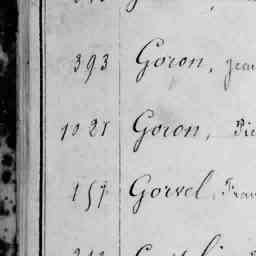 393 Goron, Jean
1021 Goron, Pie
157 Gorvel, Fran